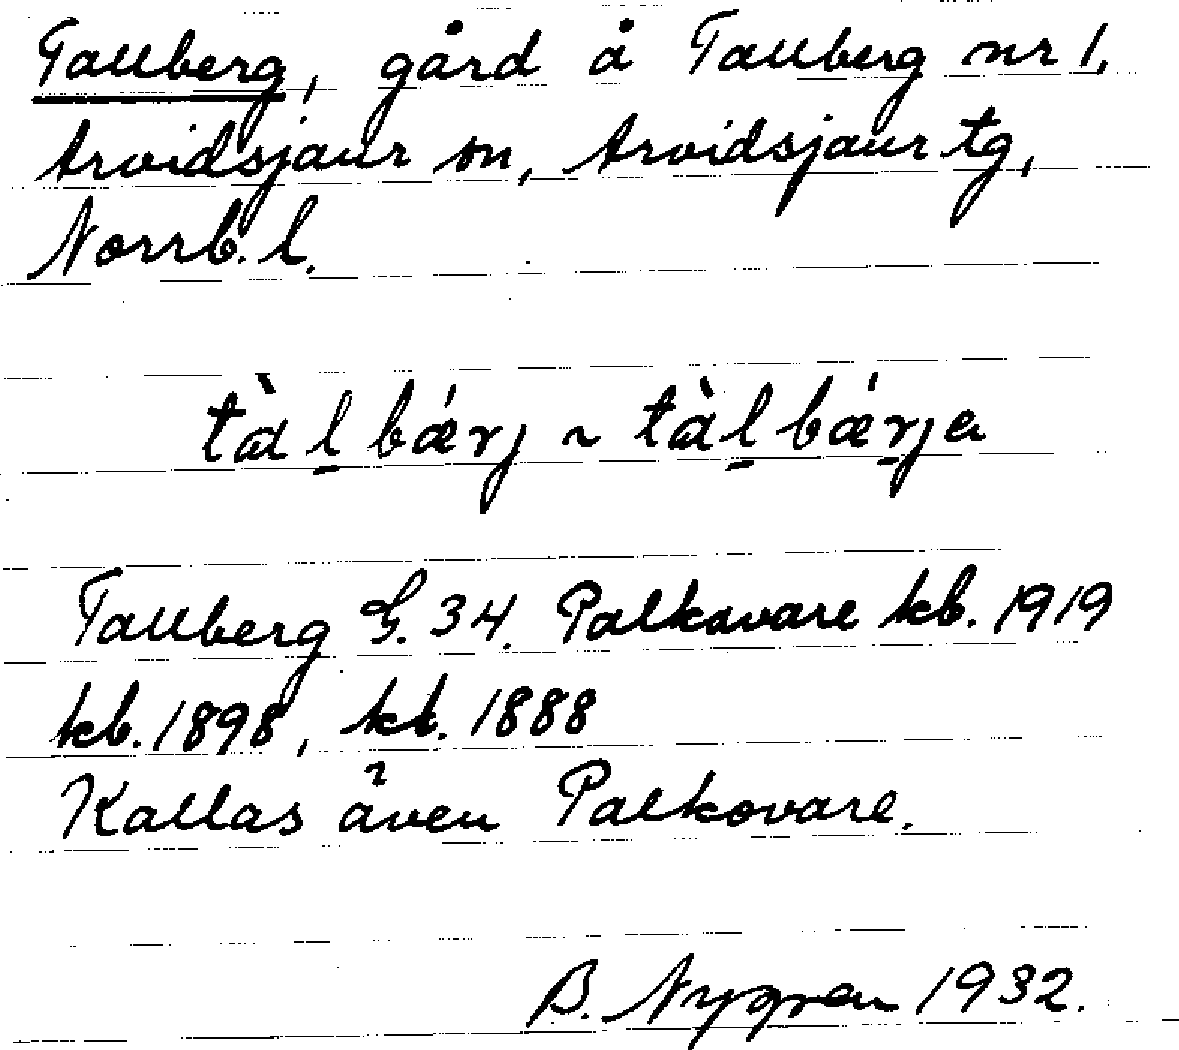 Tallberg, gård å Tallberg nr 1,
Arvidsjaur sn, Arvidsjaur tg,
Norrb. l.
tàl̠bǽrj ~ tàl̠bǽr̠ja
Tallberg G. 34. Palkavare kb. 1919
kb. 1898, kb. 1888
Kallas även Palkovare.
B. Nygren 1932.